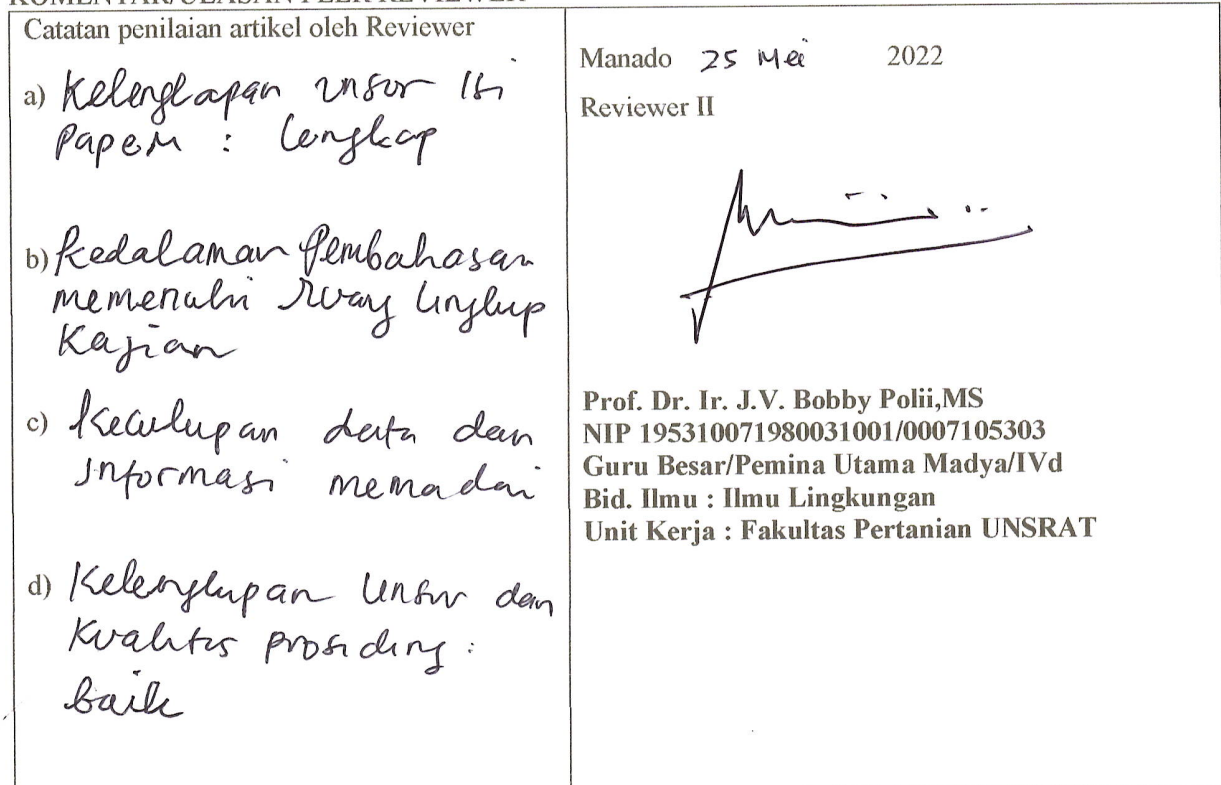 Catatan penilaian artikel oleh Reviewer
a) Kelengkapan unsur isi
paper : lengkap
b) Kedalaman Pembahasan
memenuhi ruang lingkup
Kajian
c) Kecukupan data dan
informasi memadai
d) Kelengkapan unsur dan
Kualitas prosiding :
baik
Manado 25 Mei 2022
Reviewer II
Prof. Dr. Ir. J.V. Bobby Polii,MS
NIP 195310071980031001/0007105303
Guru Besar/Pemina Utama Madya/IVd
Bid. Ilmu : Ilmu Lingkungan
Unit Kerja : Fakultas Pertanian UNSRAT